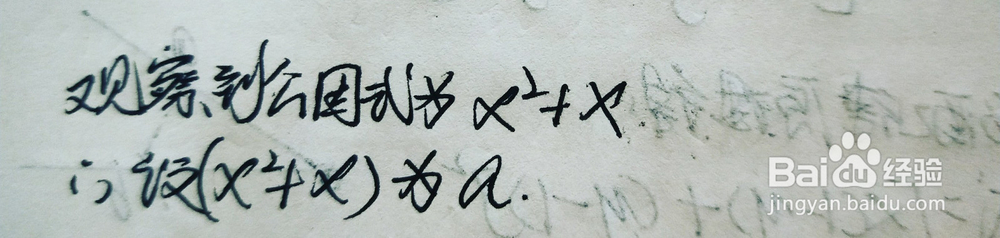 观察到公因式为 x²+x.
∴设(x²+x)为a.
Baidu经验
jingyan.baidu.com